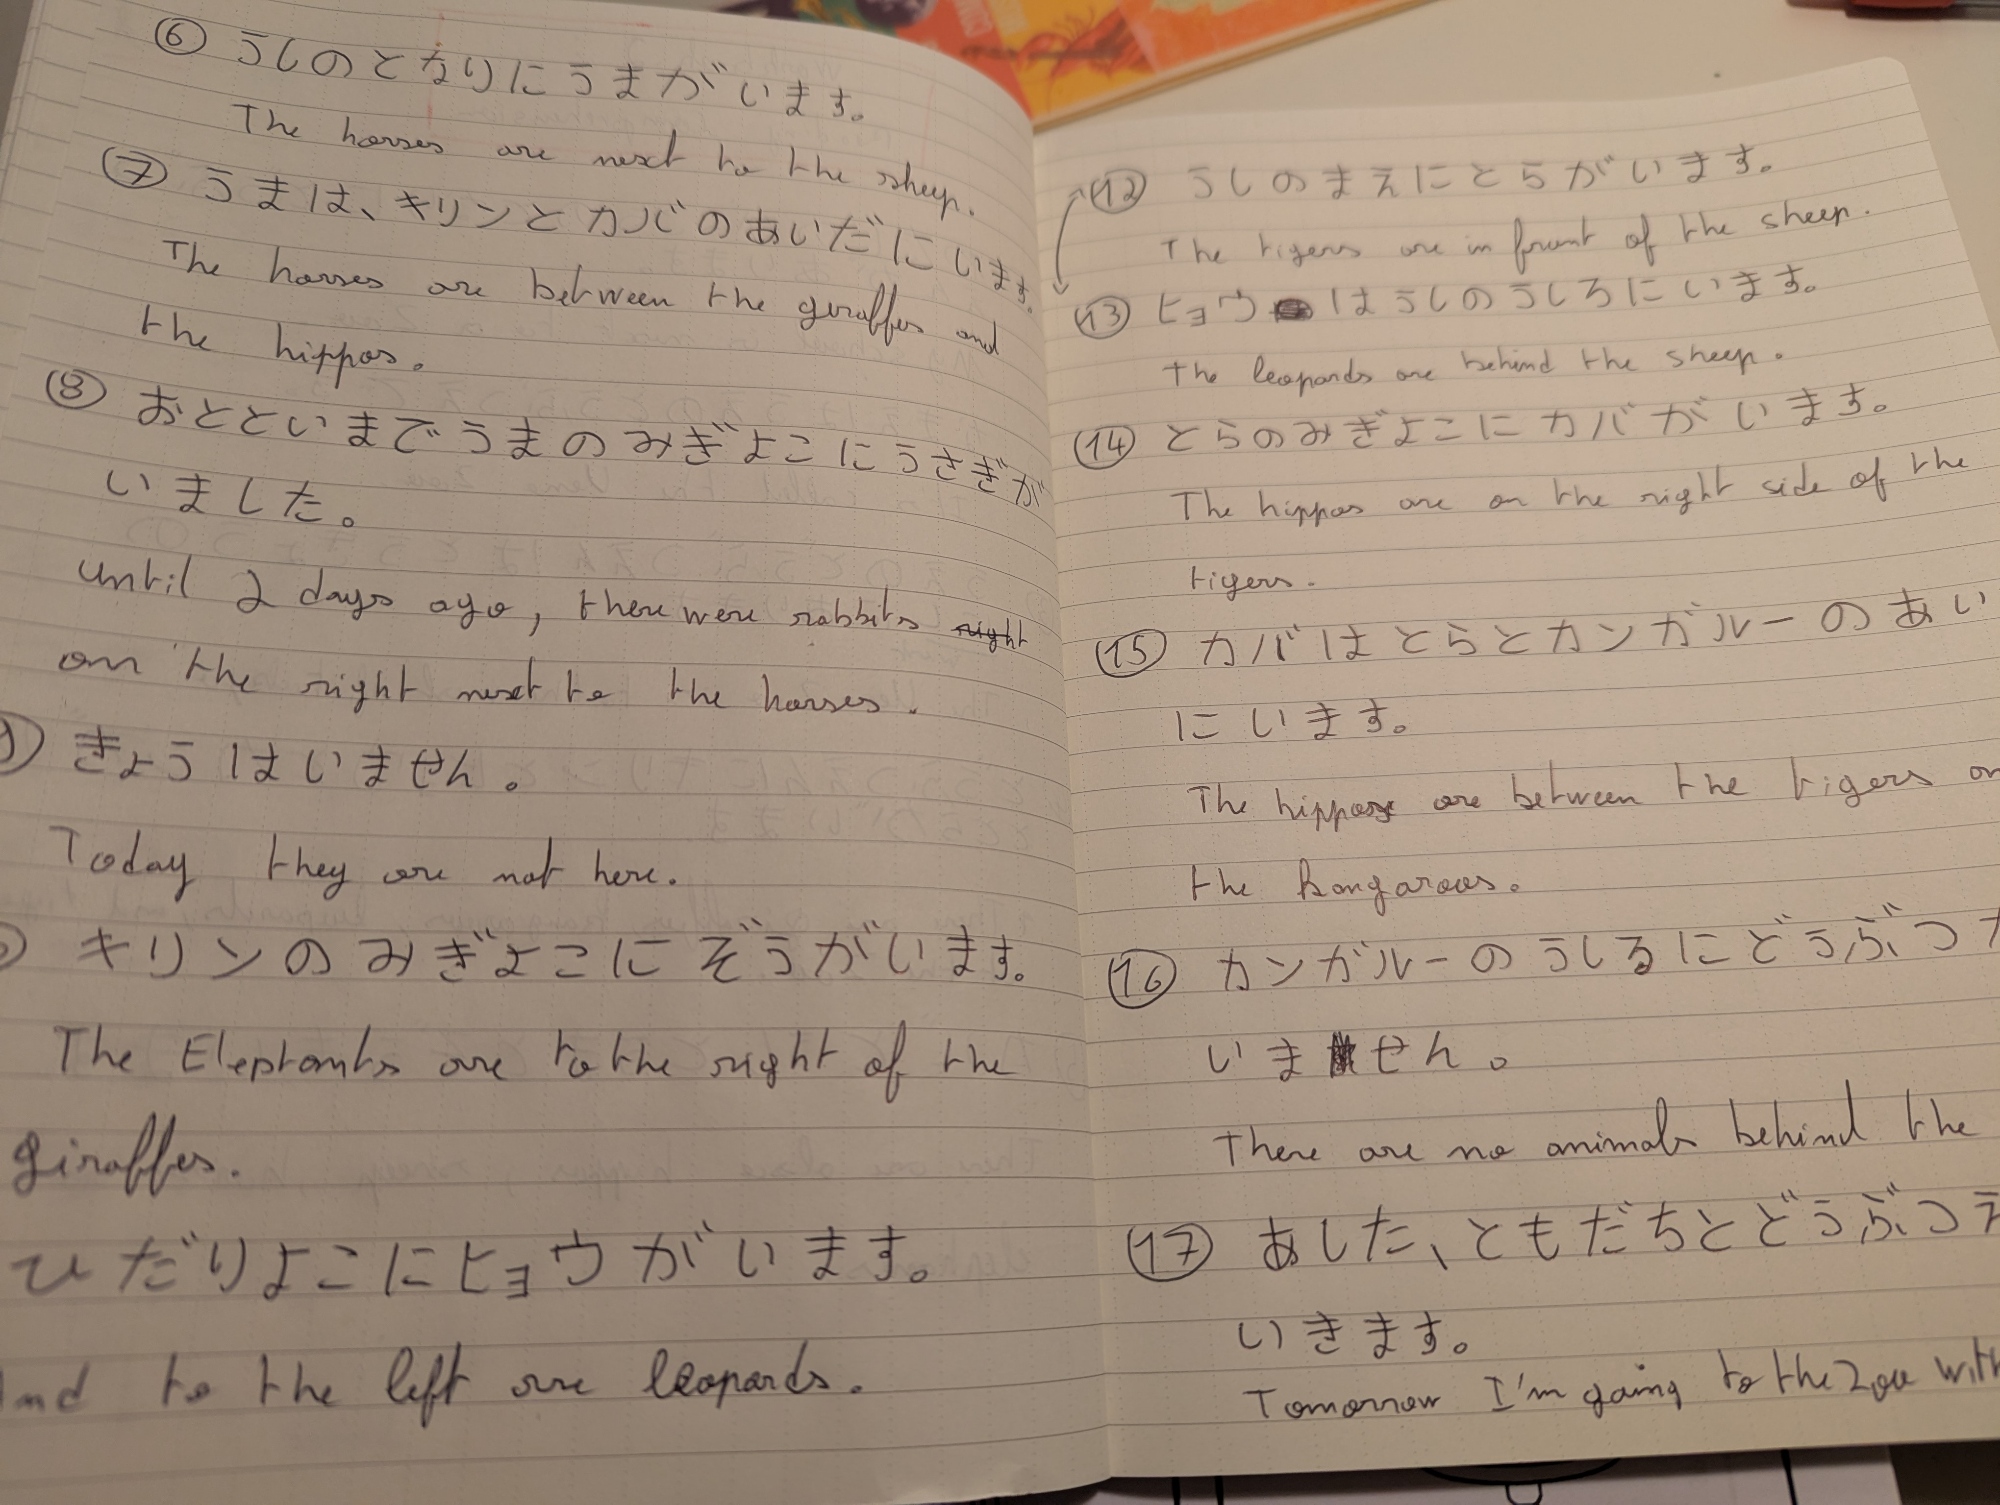 ⑥ うしのとなりにうまがいます。
The horses are next to the sheep.
⑦ うまは、キリンとカバのあいだにいます。
The horses are between the giraffes and
the hippos.
⑧ おとといまでうまのみぎよこにうさぎが
いました。
until 2 days ago, there were rabbits right
on the right next to the horses.
きょうはいません。
Today they are not here.
キリンのみぎよこにぞうがいます。
The Eleptants are to the right of the
giraffes.
ひだりよこにヒョウがいます。
to the left are leopards.
⑫ うしのまえにとらがいます。
The tigers are in front of the sheep.
⑬ ヒョウはうしのうしろにいます。
The leopards are behind the sheep.
⑭ とらのみぎよこにカバがいます。
The hippos are on the right side of the
tigers.
⑮ カバはとらとカンガルーのあい
にいます。
The hippos are between the tigers
the kangaroos.
⑯ カンガルーのうしるにどうぶつ
いません。
There are no animals behind the
⑰ あした、ともだちとどうぶつえ
いきます。
Tomorrow I'm going to the Zoo with